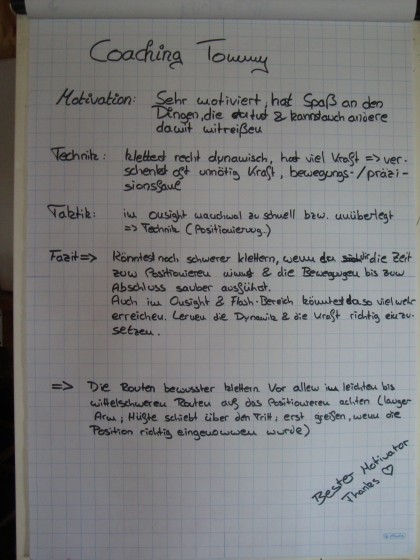 Coaching Tommy
Motivation: Sehr motiviert, hat Spaß an den
Dingen, die tut & kannst auch andere
damit mitreißen
Technik: kletterst recht dynamisch, hat viel Kraft => ver-
schenkst oft unnötig Kraft, bewegungs-/präzi-
sionsfaul
Taktik: im Onsight manchmal zu schnell bzw. unüberlegt
=> Technik (Positionierung)
Fazit => Könntest noch schwerer klettern, wenn du dir die Zeit
zum Positionieren nimmst & die Bewegungen bis zum
Abschluss sauber ausführst.
Auch im Onsight & Flash-Bereich könntest da so viel mehr
erreichen. Lernen die Dynamik & die Kraft richtig einzu-
setzen.
=> Die Routen bewusster klettern. Vor allem im leichten bis
mittelschweren Routen auf das Positionieren achten (langer
Arm, Hüfte schiebt über den Tritt, erst greifen, wenn die
Position richtig eingenommen wurde)
Bester Motivator
Thanks ♡